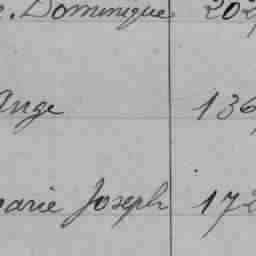 Dominique 202
Ange 136
Marie Joseph 172